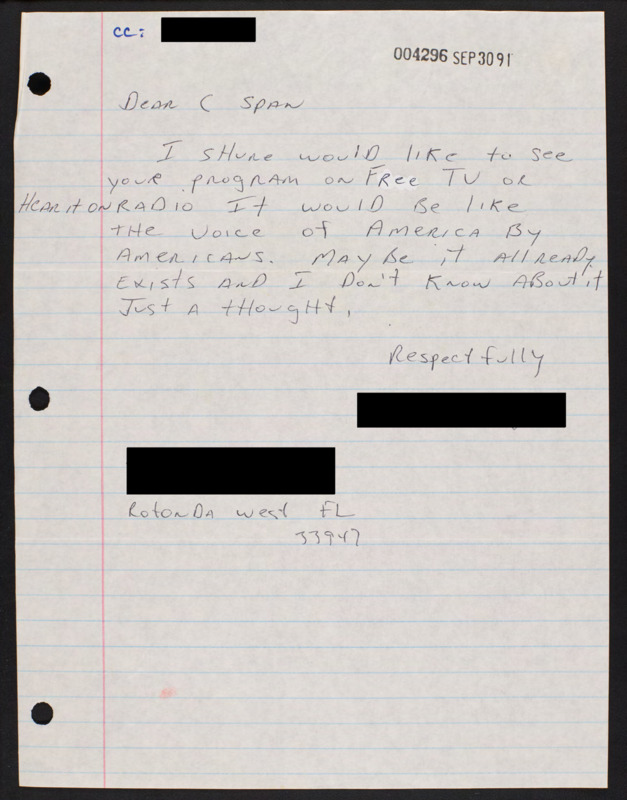 cc:
004296 SEP 30 91
Dear C Span
I shure would like to see
your program on Free TV or
Hear it on Radio It would be like
the voice of America By
Americans. May be it allready
exists and I Don't know about it
Just a thought,
Respectfully
Rotonda West FL
33947